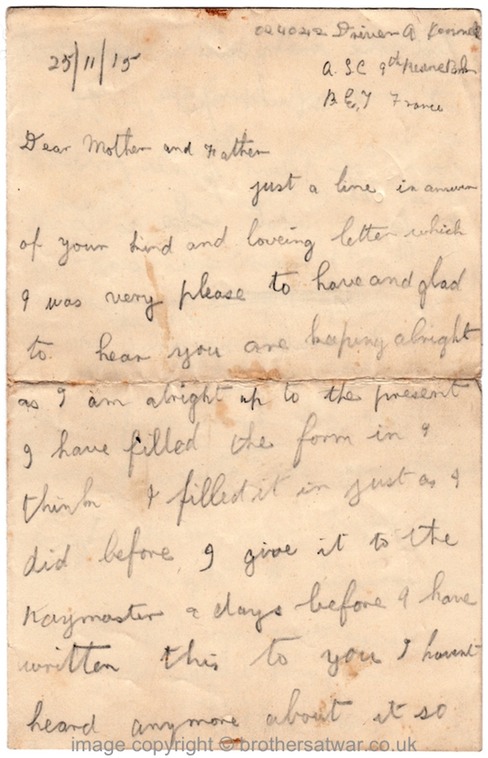 024042 Driver A
25/11/15
A.S.C 9th
B.E.F France
Dear Mother and Father
just a line in answer
of your kind and loveing letter which
I was very please to have and glad
to hear you are keeping alright
as I am alright up to the present
I have filled the form in &
think I filled it in just as I
did before, I give it to the
days before I have
written this to you I havent
heard anymore about it so
image copyright © brothersatwar.co.uk